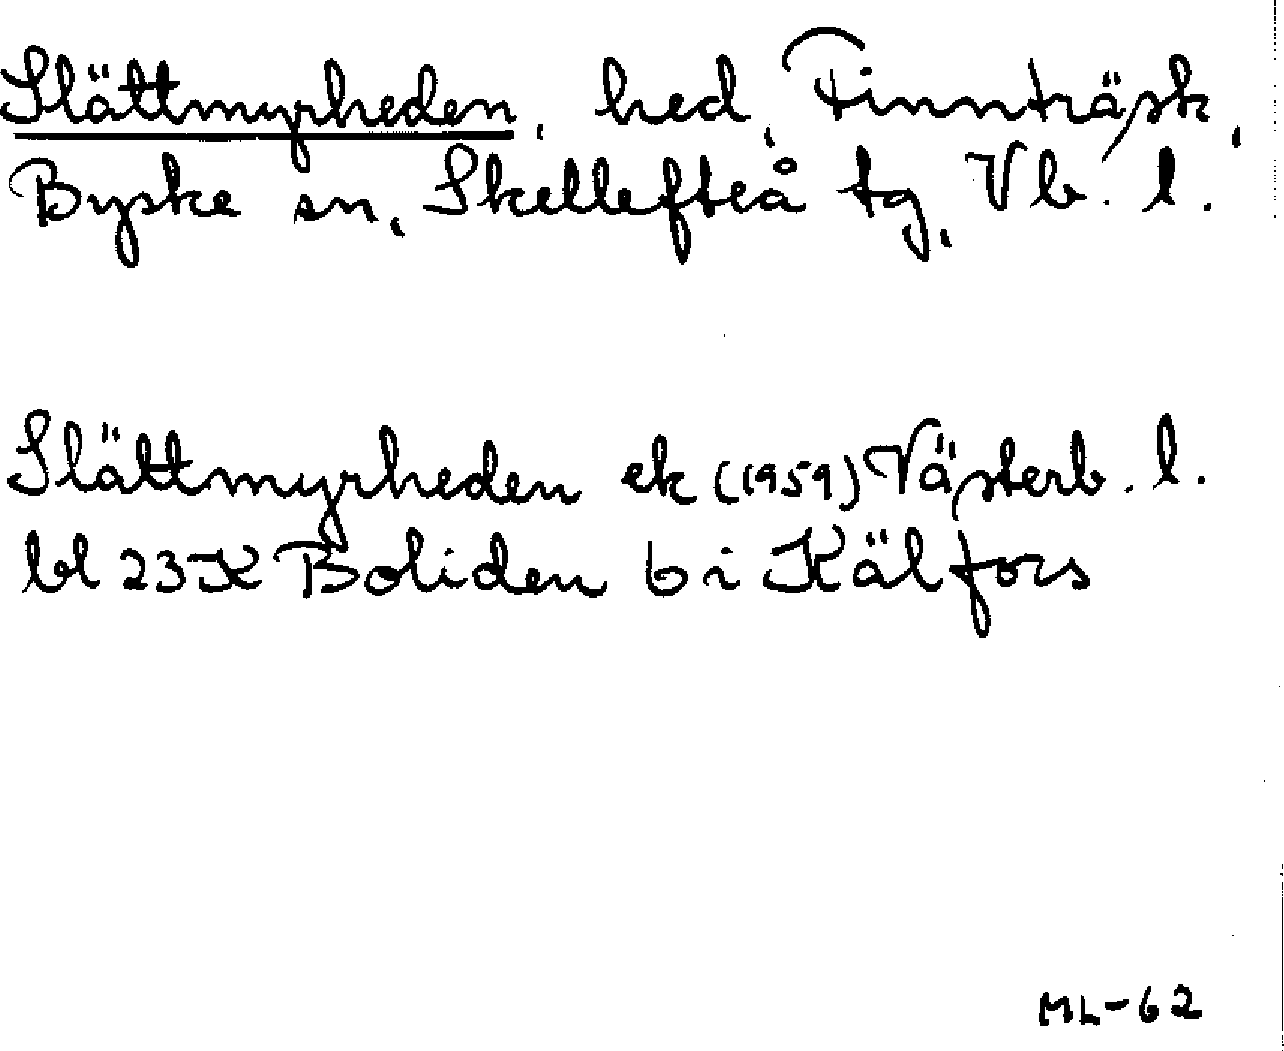 Slåttmyrheden, hed, Finnträsk,
Byske sn, Skellefteå tg, Vb. l.
Slåttmyrheden ek (1959) Västerb. l.
bl 23 K Boliden b i Kälfors
ML-62